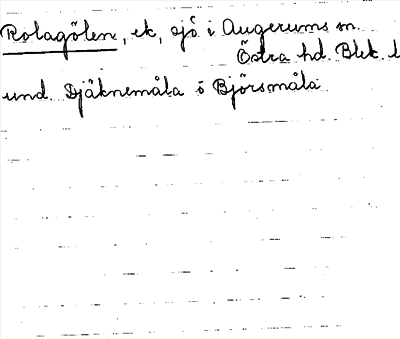 Rolagölen, ek, sjö i Augerums sn.
Östra hd. Blek. l
und. Djäknemåla o Björsmåla